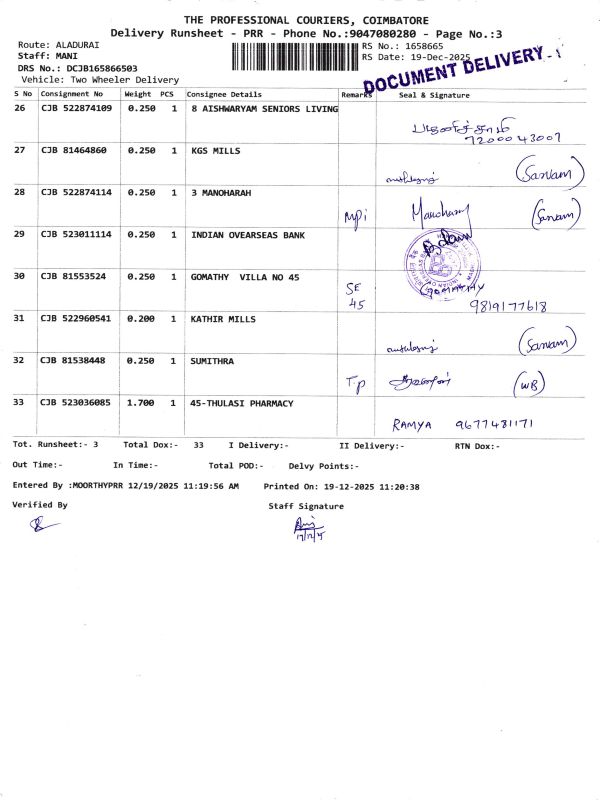 THE PROFESSIONAL COURIERS, COIMBATORE
Delivery Runsheet - PRR - Phone No.:9047080280 - Page No.:3
Route: ALADURAI
RS No.: 1658665
Staff: MANI
RS Date: 19-Dec-2025
DRS No.: DCJB165866503
DOCUMENT DELIVERY
Vehicle: Two Wheeler Delivery
S No Consignment No Weight PCS Consignee Details Remarks Seal & Signature
26 CJB 522874109 0.250 1 8 AISHWARYAM SENIORS LIVING
7200043007
27 CJB 81464860 0.250 1 KGS MILLS
(Sarvam)
28 CJB 522874114 0.250 1 3 MANOHARAH
Manohary (Sarvam)
29 CJB 523011114 0.250 1 INDIAN OVEARSEAS BANK
30 CJB 81553524 0.250 1 GOMATHY VILLA NO 45
SE 45 9819177618
31 CJB 522960541 0.200 1 KATHIR MILLS
(Sarvam)
32 CJB 81538448 0.250 1 SUMITHRA
T.p (WB)
33 CJB 523036085 1.700 1 45-THULASI PHARMACY
RAMYA 9677481171
Tot. Runsheet:- 3 Total Dox:- 33 I Delivery:- II Delivery:- RTN Dox:-
Out Time:- In Time:- Total POD:- Delvy Points:-
Entered By :MOORTHYPRR 12/19/2025 11:19:56 AM Printed On: 19-12-2025 11:20:38
Verified By Staff Signature